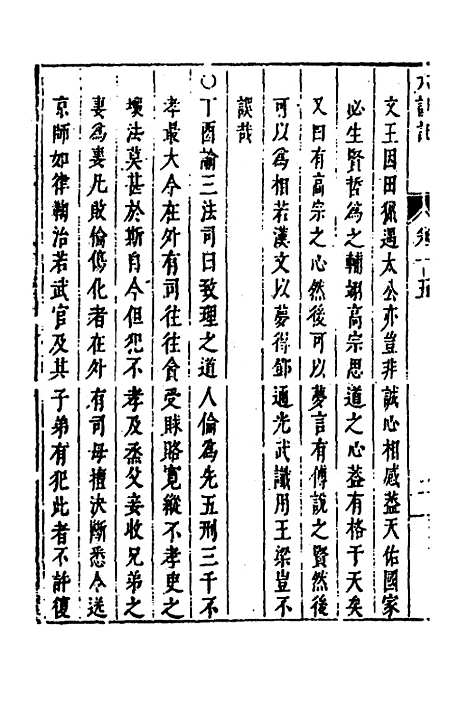 卷一百五
文王因田獵遇太公亦豈非誠心相感葢天佑國家
必生賢哲為之輔翊高宗思道之心葢有格于天矣
又曰有高宗之心然後可以夢言有傅說之賢然後
可以為相若漢文以夢得鄧通光武讖用王梁豈不
誤哉
〇丁酉諭三法司曰致理之道人倫為先五刑三千不
孝最大今在外有司往往貪受賕賂寬縱不孝吏之
壞法莫甚於斯自今但犯不孝及烝父妾收兄弟之
妻為妻凡敗倫傷化者在外有司毋擅決斷悉令送
京師如律鞫治若武官及其子弟有犯此者不許復